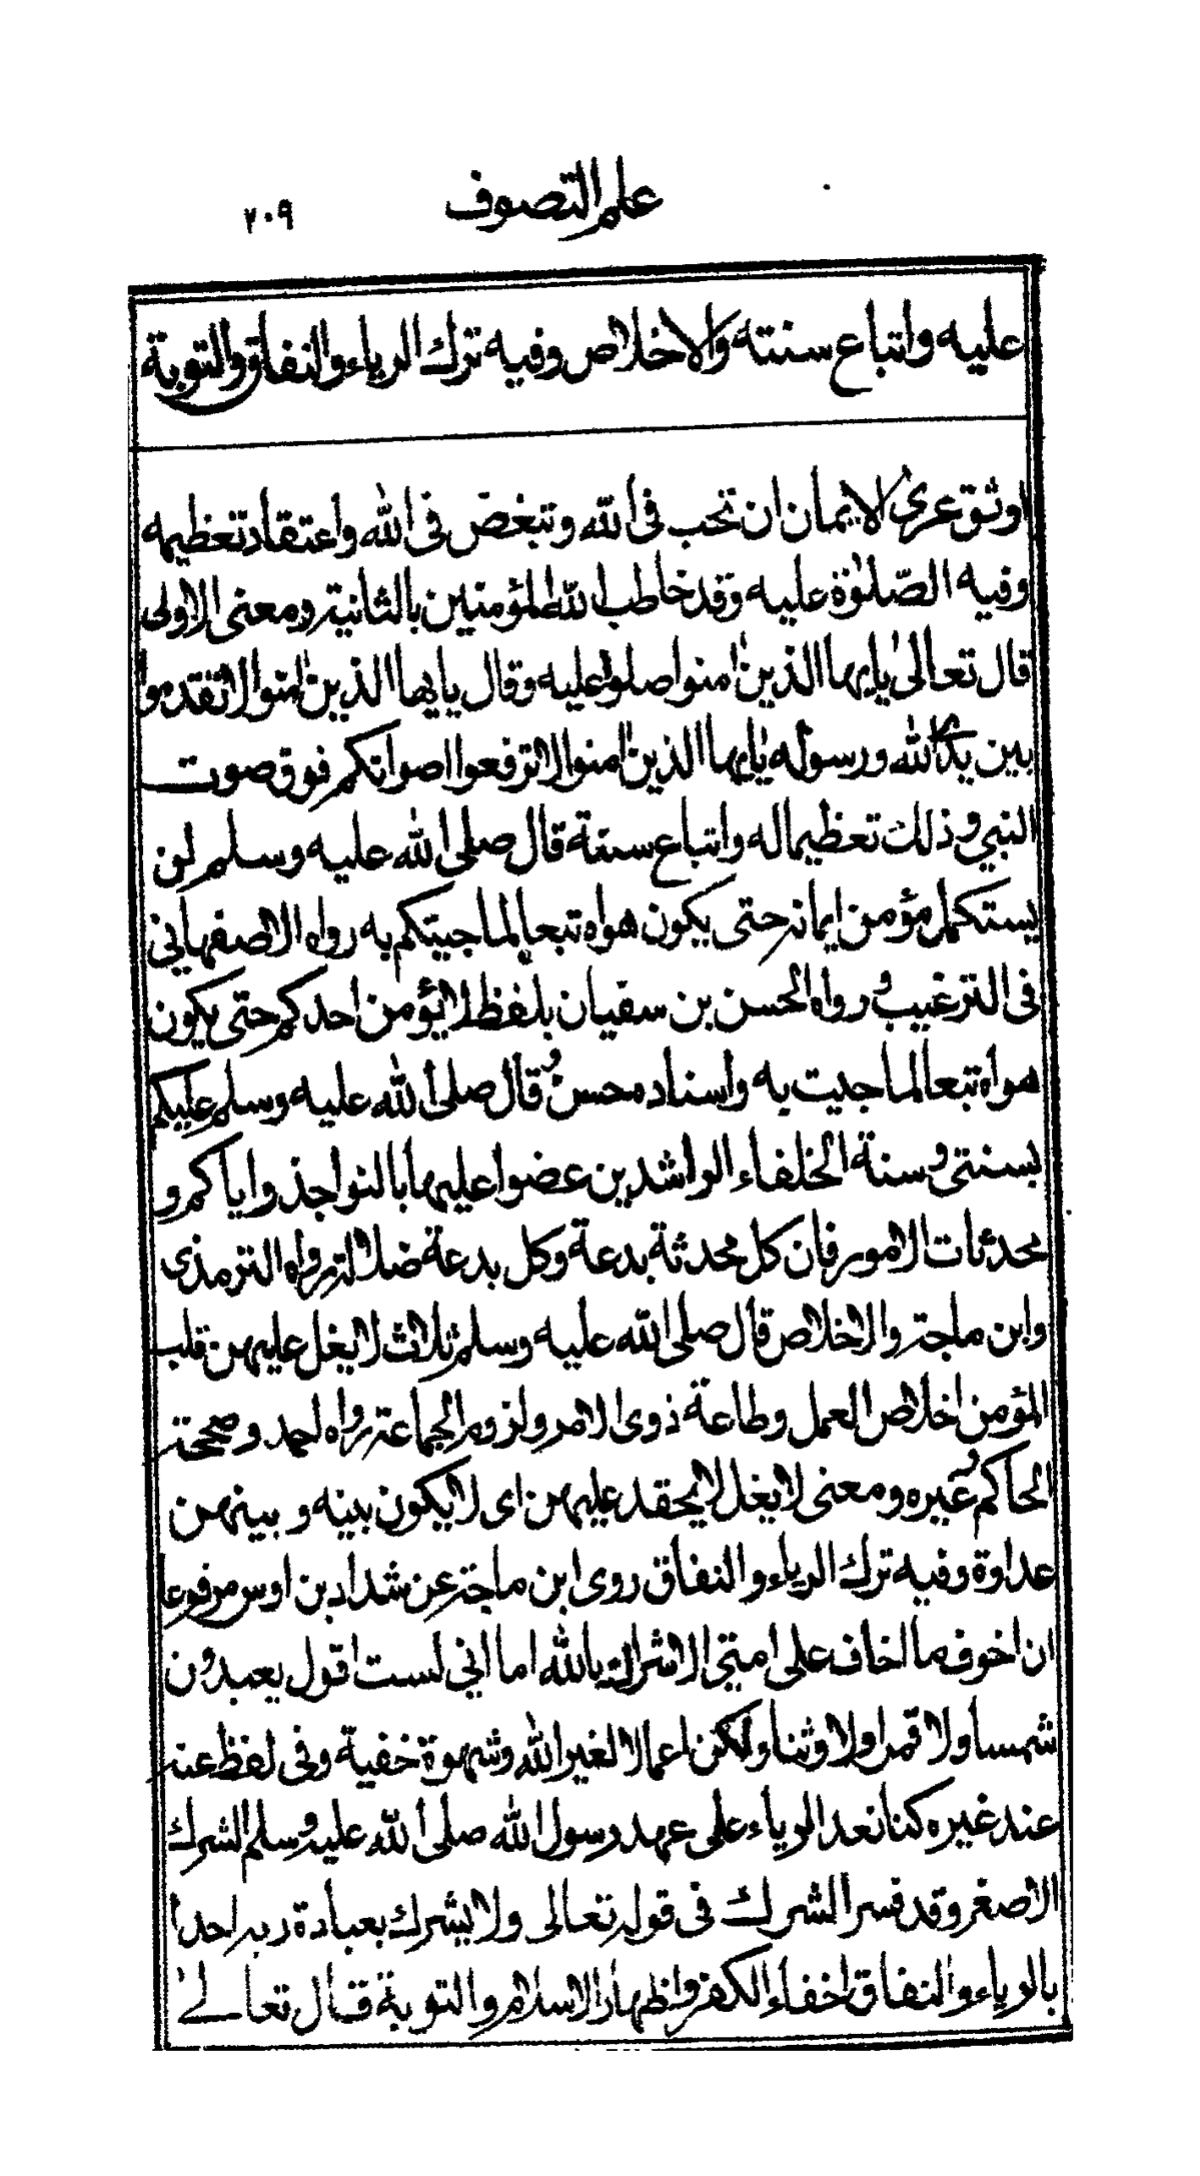 علم التصوف
٢٠٩
عليه واتباع سنته والاخلاص وفيه ترك الرياء والنفاق والتوبة
اوثق عرى الايمان ان تحب فى الله وتبغض فى الله واعتقاد تعظيمه
وفيه الصّلوٰة عليه وقد خاطب الله المؤمنين بالثانية ومعنى الاولى
قال تعالىٰ يايها الذين اٰمنوا صلوا عليه وقال يايها الذين اٰمنوا لا تقدموا
بين يدى الله ورسوله يٰايها الذين اٰمنوا لا ترفعوا اصواتكم فوق صوت
النبي وذلك تعظيما له واتباع سنتة قال صلى الله عليه وسلم لن
يستكمل مؤمن ايمانه حتى يكون هواه تبعا لما جيتكم به رواه الاصفهاني
فى الترغيب ورواه الحسن بن سفيان بلفظ لا يؤمن احدكم حتى يكون
هواه تبعا لما جيت به واسناده حسن وقال صلى الله عليه وسلم عليكم
بسنتى وسنة الخلفاء الراشدين عضوا عليها بالنواجذ واياكم و
محدثات الامور فان كل محدثة بدعة وكل بدعة ضلالة رواه الترمذى
وابن ماجة والاخلاص قال صلى الله عليه وسلم ثلاث لا يغل عليهن قلب
المؤمن اخلاص العمل وطاعة ذوى الامر ولزوم الجماعة رواه احمد وصححة
الحاكم وغيره ومعنى لا يغل لا يحقد عليهن اى لا يكون بينه وبينهن
عداوة وفيه ترك الرياء والنفاق روى ابن ماجة عن شداد بن اوس مرفوعا
ان اخوف ما اخاف على امتي الاشراك بالله اما اني لست اقول يعبدون
شمسا ولا قمرا ولا وثنا ولكن اعمالا لغير الله وشهوة خفية وفى لفظ عنه
عند غيره كنا نعد الرياء على عهد رسول الله صلى الله عليه وسلم الشرك
الاصغر وقد فسر الشرك فى قوله تعالى ولا يشرك بعبادة ربه احدا
بالرياء والنفاق اخفاء الكفر واظهار الاسلام والتوبة قال تعالے